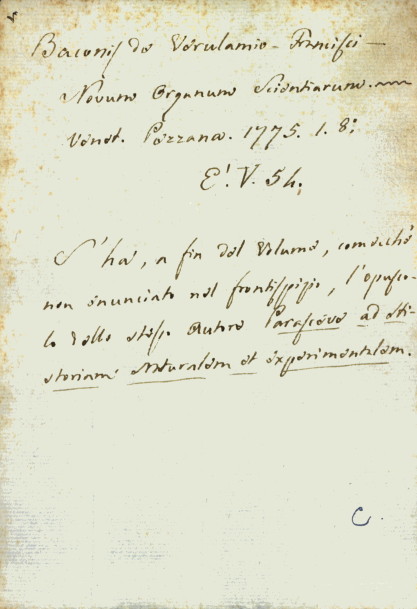 Baconis de Verulamio - Francisci -
Novum Organum Scientiarum.
Venet. Pezzana. 1775. 1. 8:
E'. V. 54.
S'ha, a fin del Volume, comecchè
non enunciato nel frontispizio, l'opusco-
lo dello stesso Autore Parasceve ad Hi-
storiam Naturalem et experimentalem.
C.